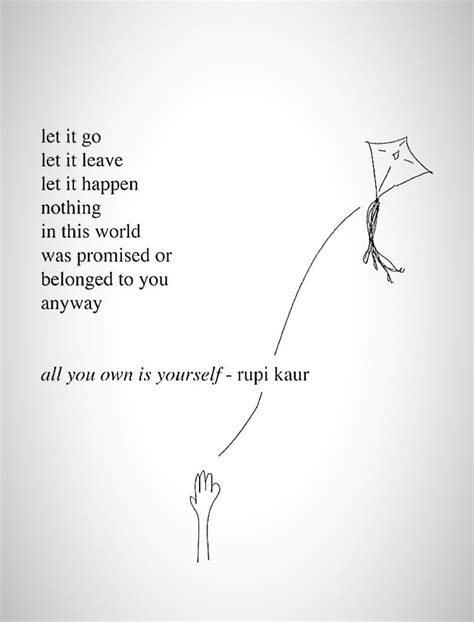 let it go
let it leave
let it happen
nothing
in this world
was promised or
belonged to you
anyway
all you own is yourself - rupi kaur